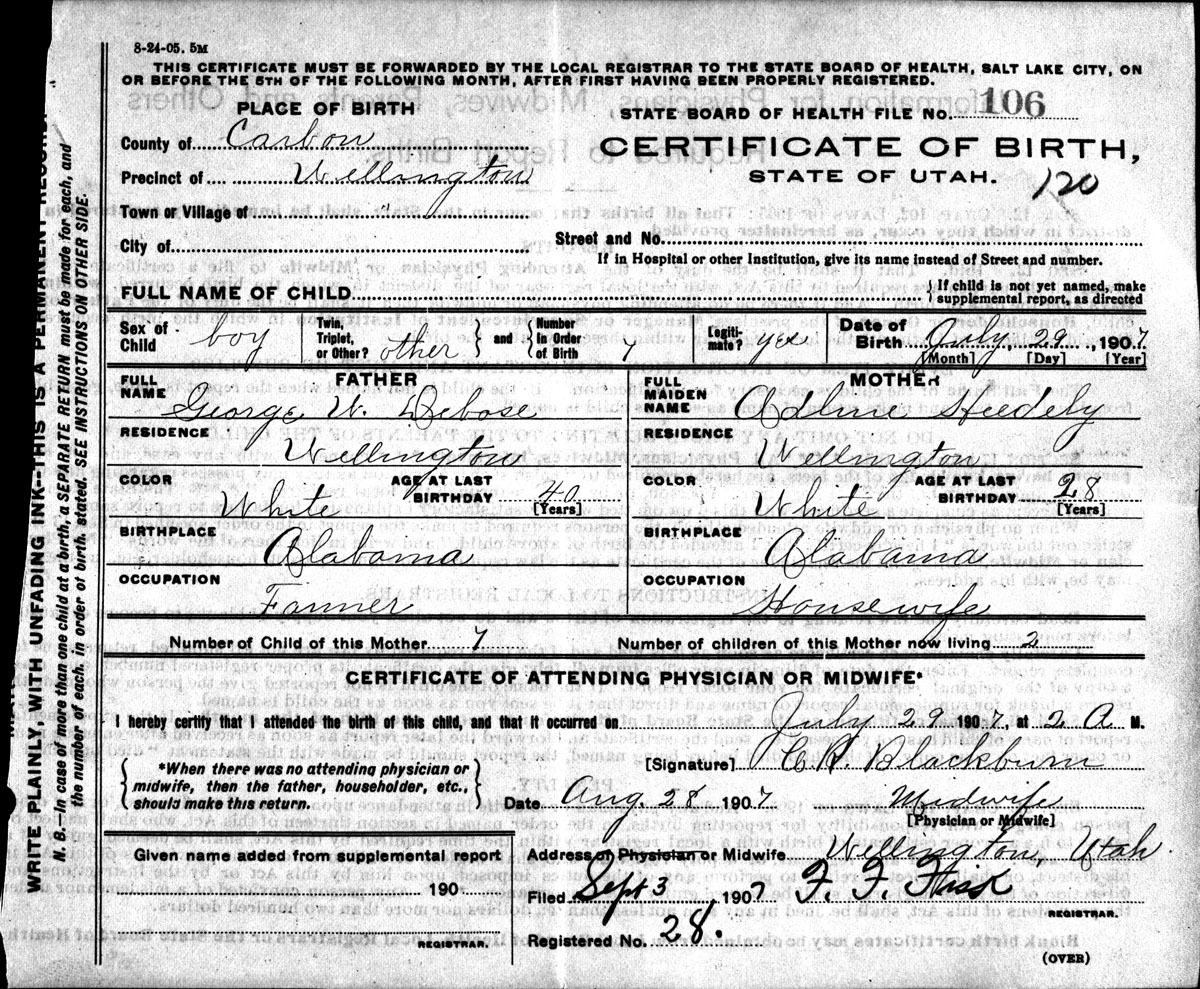 8-24-05. 5M
THIS CERTIFICATE MUST BE FORWARDED BY THE LOCAL REGISTRAR TO THE STATE BOARD OF HEALTH, SALT LAKE CITY, ON
OR BEFORE THE 5TH OF THE FOLLOWING MONTH, AFTER FIRST HAVING BEEN PROPERLY REGISTERED.
PLACE OF BIRTH
STATE BOARD OF HEALTH FILE No. 106
County of Carbon
CERTIFICATE OF BIRTH,
Precinct of Wellington
STATE OF UTAH.
120
Town or Village of "
City of
Street and No.
If in Hospital or other Institution, give its name instead of Street and number.
FULL NAME OF CHILD
If child is not yet named, make
supplemental report, as directed
Sex of Child boy Twin, Triplet, or Other? other and Number In Order of Birth 7 Legitimate? yes Date of Birth July 29, 1907
[Month] [Day] [Year]
FATHER
MOTHER
FULL NAME George W. Debose
FULL MAIDEN NAME
RESIDENCE Wellington
RESIDENCE Wellington
COLOR White AGE AT LAST BIRTHDAY 40 [Years]
COLOR White AGE AT LAST BIRTHDAY 28 [Years]
BIRTHPLACE Alabama
BIRTHPLACE Alabama
OCCUPATION Farmer
OCCUPATION Housewife
Number of Child of this Mother 7
Number of children of this Mother now living 2
CERTIFICATE OF ATTENDING PHYSICIAN OR MIDWIFE*
I hereby certify that I attended the birth of this child, and that it occurred on July 29 1907, at 2 A M.
*When there was no attending physician or
midwife, then the father, householder, etc.,
should make this return.
[Signature] Blackburn
Date Aug. 28 1907 Midwife
[Physician or Midwife]
Given name added from supplemental report
190
REGISTRAR.
Address of Physician or Midwife Wellington, Utah
Filed Sept 3 1907 F. F.
REGISTRAR.
Registered No. 28.
(OVER)
WRITE PLAINLY, WITH UNFADING INK--THIS IS A PERMANENT RECORD.
N. B.--In case of more than one child at a birth, a SEPARATE RETURN must be made for each, and
the number of each, in order of birth, stated. SEE INSTRUCTIONS ON OTHER SIDE.